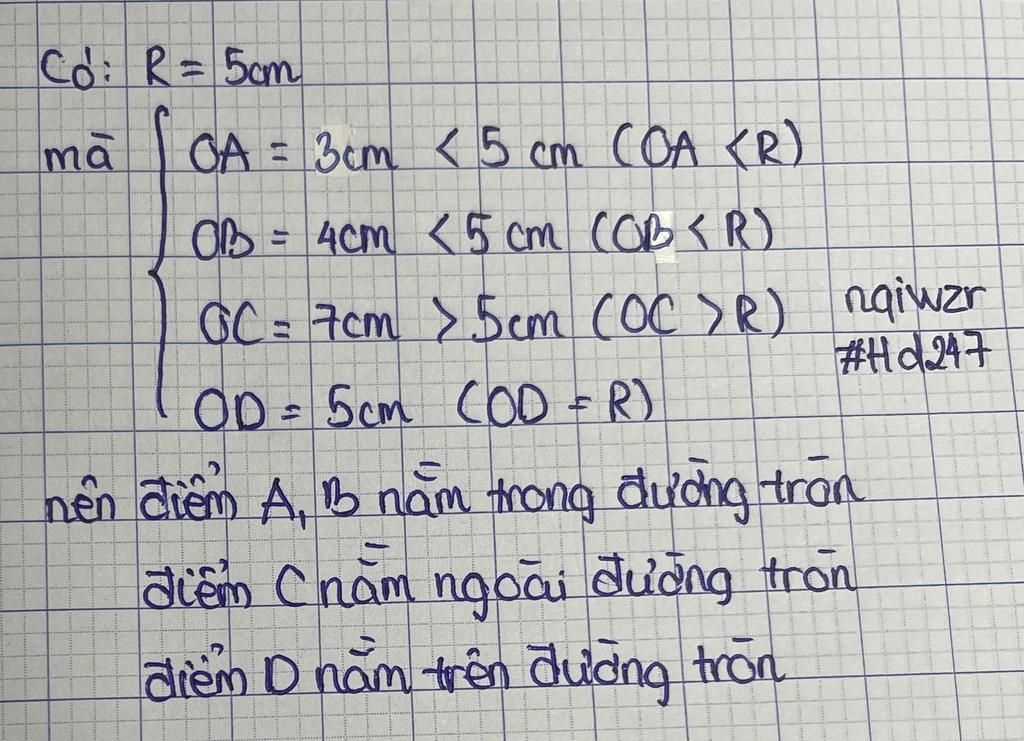 Có: R = 5cm
mà { OA = 3cm < 5 cm (OA < R)
OB = 4cm < 5 cm (OB < R)
OC = 7cm > 5cm (OC > R)
nqiwzr
#Hd247
OD = 5cm (OD = R)
nên điểm A, B nằm trong đường tròn
điểm C nằm ngoài đường tròn
điểm D nằm trên đường tròn